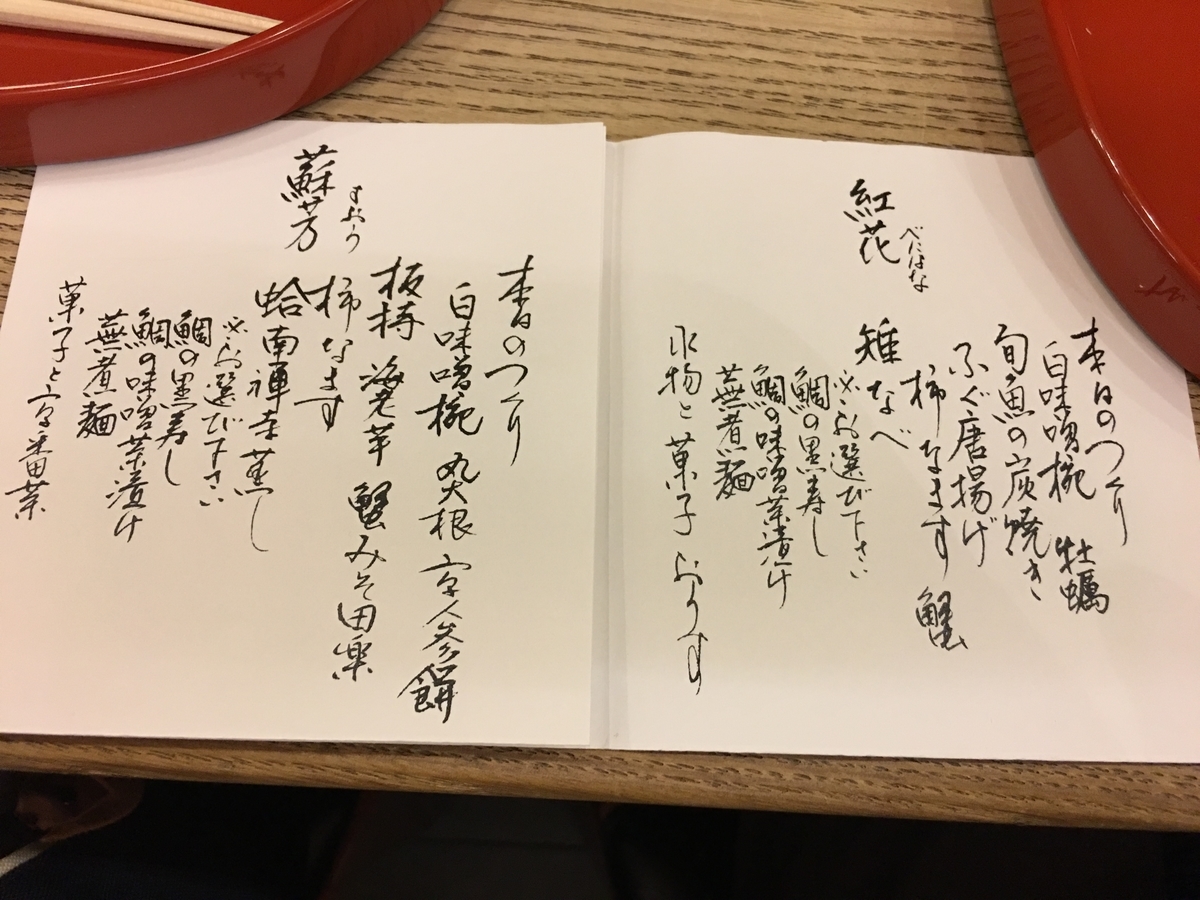 紅花
べにはな
本日のつくり
白味噌椀 牡蠣
旬魚の炭焼き
ふぐ唐揚げ
柿なます 蟹
雉なべ
※お選び下さい
鯛の黒寿し
鯛の味噌茶漬け
蕪煮麺
水物と菓子 おうす
蘇芳
すおう
本日のつくり
白味噌椀 丸大根 京人参 餅
板持 海老芋 蟹みそ田楽
柿なます
蛤南禅寺蒸し
※お選び下さい
鯛の黒寿し
鯛の味噌茶漬け
蕪煮麺
菓子と京番茶